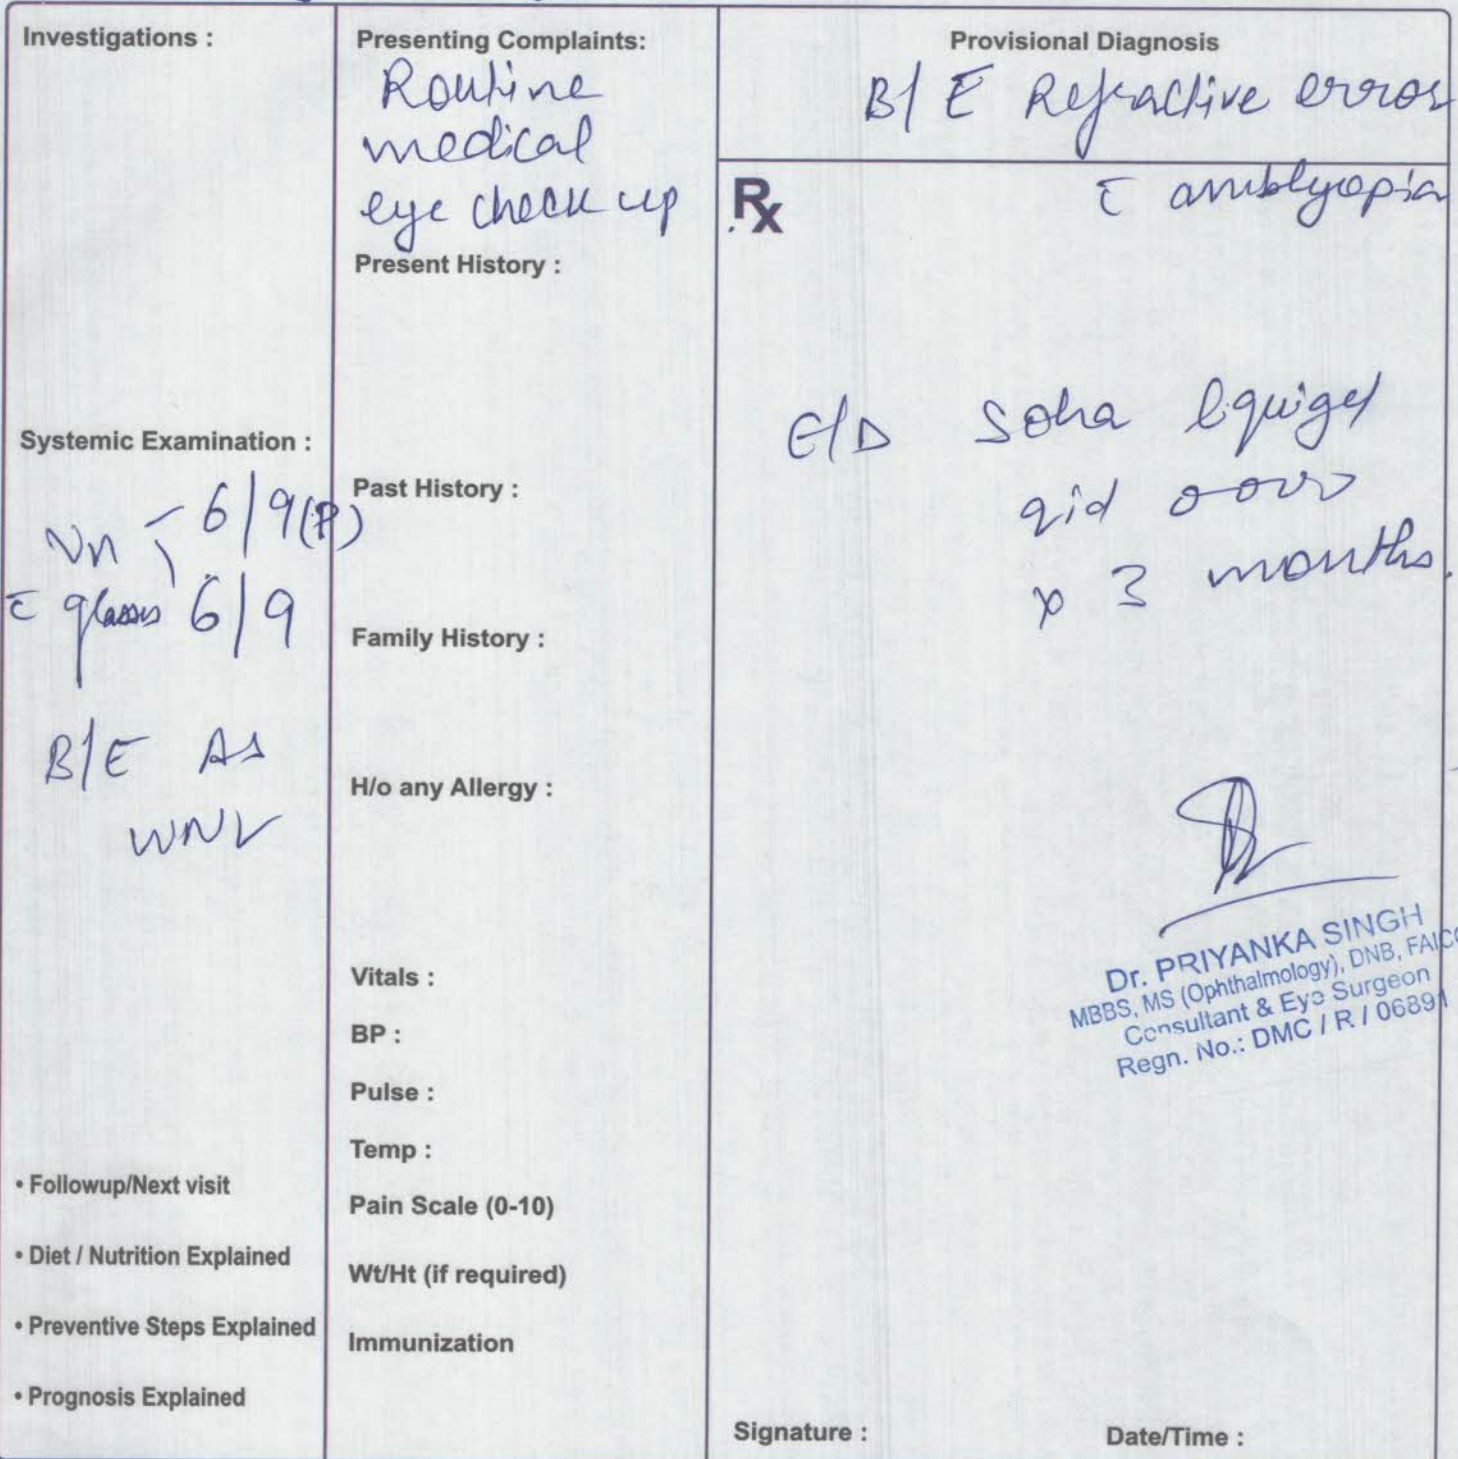 Investigations :
Systemic Examination :
Vn 6/9(P)
c̄ glasses 6/9
B/E As
WNL
• Followup/Next visit
• Diet / Nutrition Explained
• Preventive Steps Explained
• Prognosis Explained
Presenting Complaints:
Routine
medical
eye check up
Present History :
Past History :
Family History :
H/o any Allergy :
Vitals :
BP :
Pulse :
Temp :
Pain Scale (0-10)
Wt/Ht (if required)
Immunization
Provisional Diagnosis
B/E Refractive error
c̄ amblyopia
Rx
E/D Soha liquigel
qid
x 3 months.
Dr. PRIYANKA SINGH
MBBS, MS (Ophthalmology), DNB,
Consultant & Eye Surgeon
Regn. No.: DMC / R / 06891
Signature :
Date/Time :